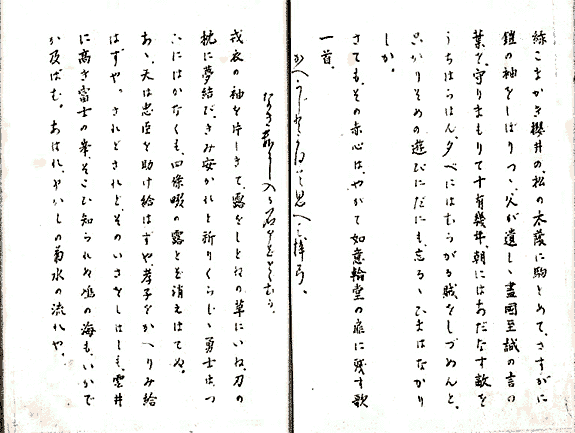 綠こまかき櫻井の、松の木蔭に駒とめて、さすがに
鎧の袖をしぼりつゝ、父が遺しゝ盡忠至誠の言の
葉を、守りまもりて十有幾年、朝にはあだなす敵を
うちはらはん、夕べにはむらがる賊をしづめんと、
かりそめの遊びにだにも、忘るゝひまはなかり
しか。
さても、その赤心は、やかて如意輪堂の扉に殘す歌
一首。
かへらじとかねて思へば梓弓、
なき數に入る名をぞとゞむる。
戎衣の袖を片しきて、露をしとねの草にいね、刀の
枕に夢結び、きみ安かれと祈りくらしゝ勇士は、つ
ひにはかなくも、四條畷の露とぞ消えはてぬ。
あゝ、天は忠臣を助け給はずや、孝子をかへりみ給
はずや。されどされど、そのいさをしはしも、雲井
に高き富士の峯、そこひ知られぬ の海も、いかで
か及ばむ。あはれ、やかしの菊水の流れや。